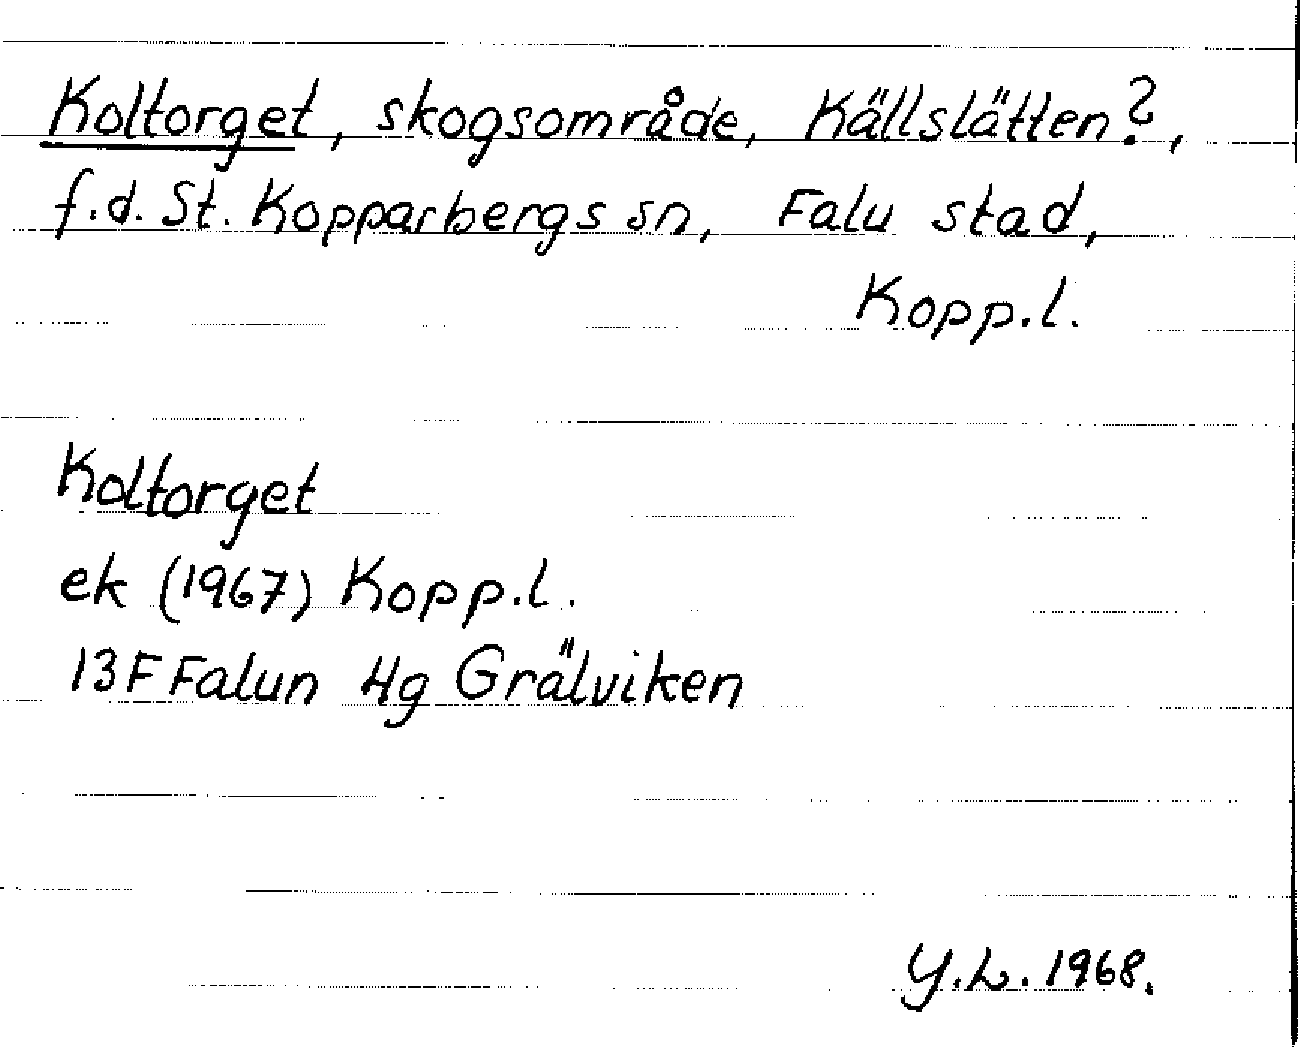 Koltorget, skogsområde, Källslätten?,
f.d. St. Kopparbergs sn, Falu stad,
Kopp.l.
Koltorget
ek (1967) Kopp.l.
13F Falun 4g Grälviken
Y.L. 1968.